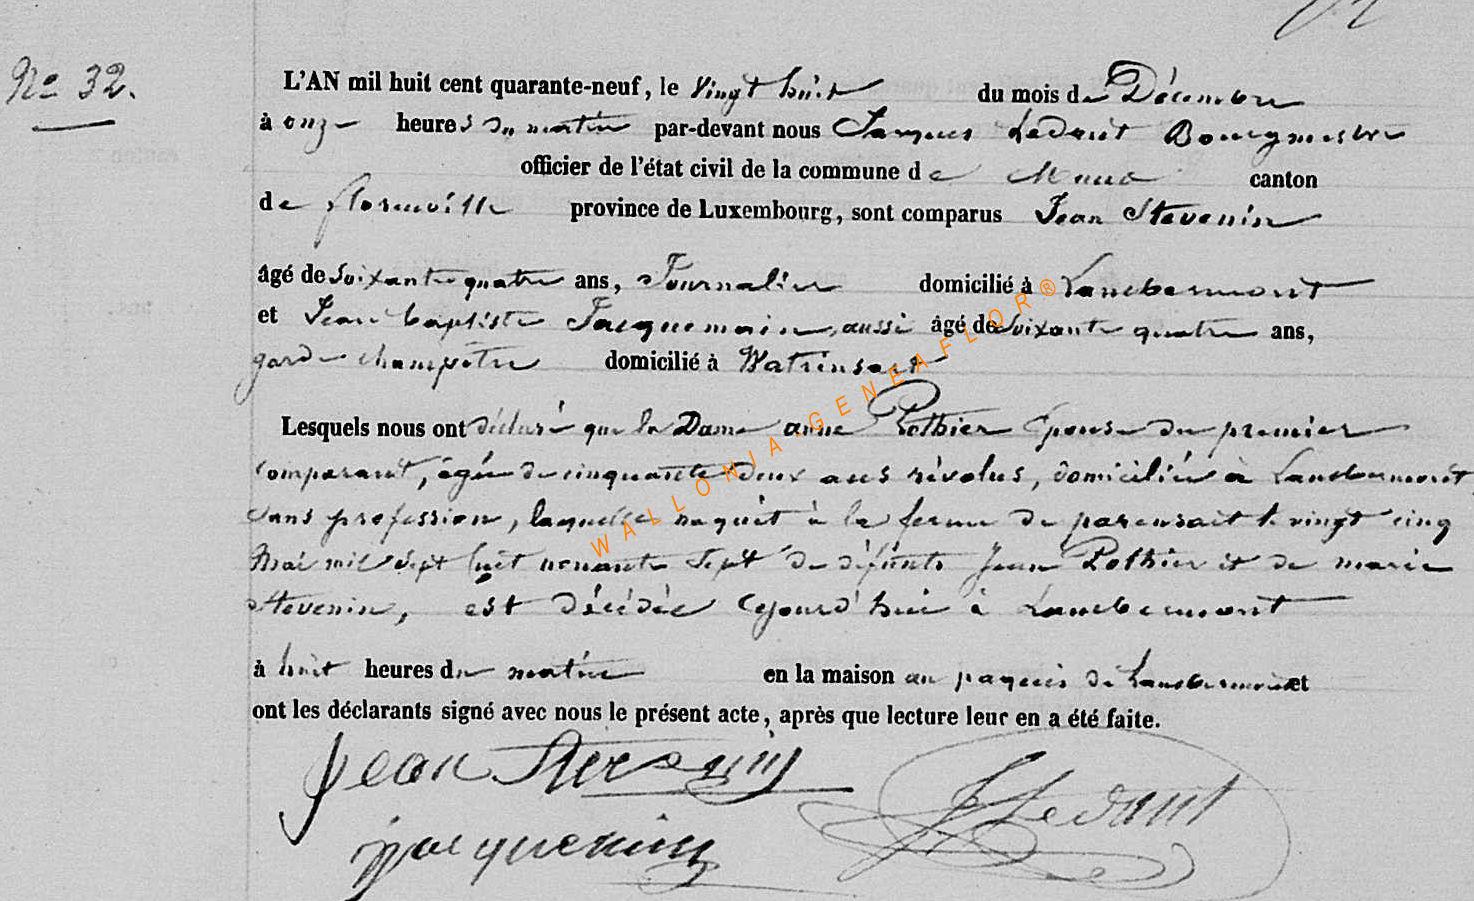 No 32.
L'AN mil huit cent quarante-neuf, le vingt huit du mois de Décembre
à onze heures du matin par-devant nous Jacques Ledant Bourgmestre
officier de l'état civil de la commune de canton
de florenville province de Luxembourg, sont comparus Jean Stevenin
âgé de soixante quatre ans, Journalier domicilié à Lambermont
et Jean baptiste Jacquemin, aussi âgé de soixante quatre ans,
garde champêtre domicilié à Watrinsart
Lesquels nous ont déclaré que la Dame anne Pothier Epouse du premier
comparant, agée de cinquante deux ans révolus, domiciliée à Lambermont,
sans profession, laquelle naquit à la ferme de le vingt cinq
Mai mil sept cent nonante sept de défunts Jean Pothier et de marie
Stevenin, est décédée cejourd'hui à Lambermont
à huit heures du matin en la maison au paquis de Lambermont et
ont les déclarants signé avec nous le présent acte, après que lecture leur en a été faite.
Jean Stevenin
JLedant
jjacquemin
WALLONIA-GENEAFLOR®